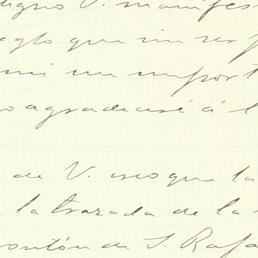 digno V. manifes
eglo que
mi un import
agradeceré á l
de V. creo que la
la trazada de la
de S. Rafa